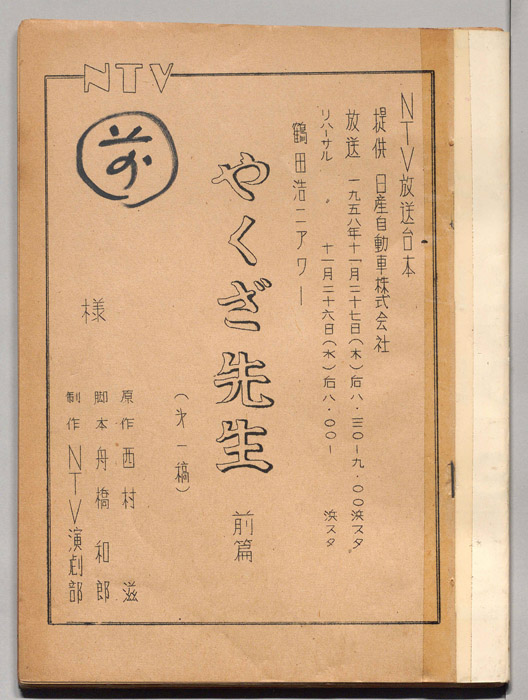 NTV
NTV放送台本
提供 日産自動車株式会社
放送 一九五八年十一月二十七日(木)后八・三〇-九・〇〇浜スタ
リハーサル 〃 十一月二十六日(水)后八・〇〇- 浜スタ
鶴田浩二アワー
やくざ先生 前篇
(才一稿)
原作 西村 滋
脚本 舟橋和郎
制作 NTV演劇部
様